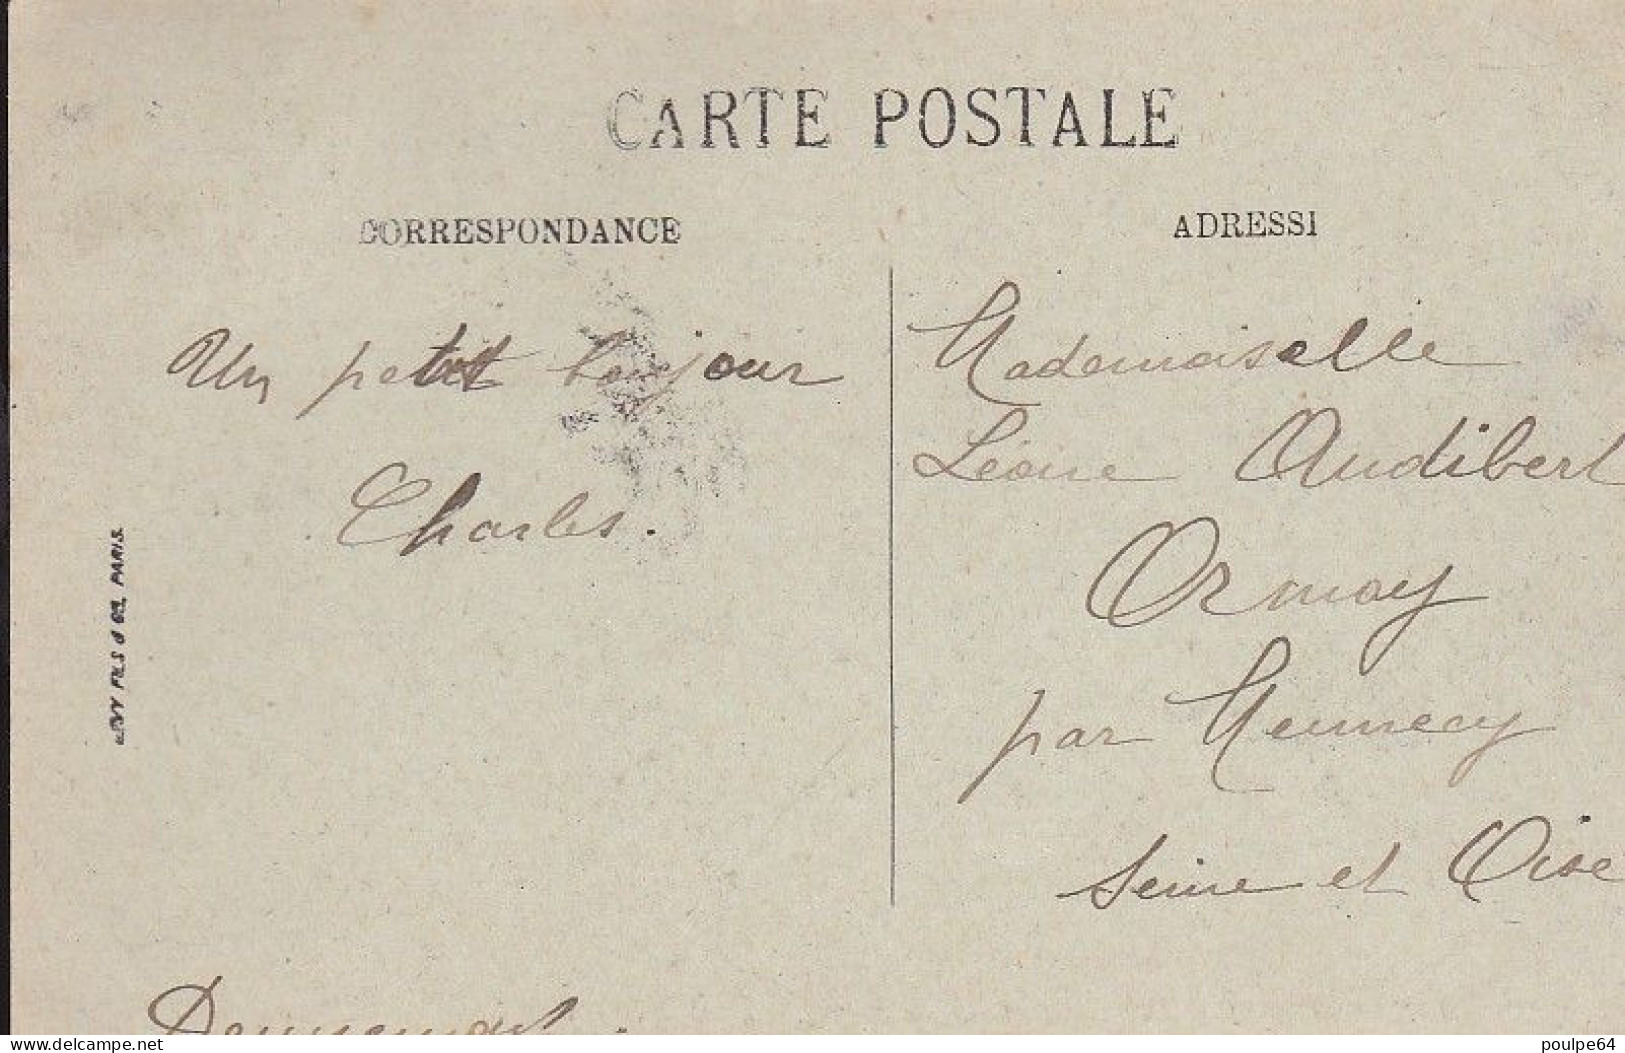 CARTE POSTALE
CORRESPONDANCE
ADRESSE
Un petit bonjour
Charles.
LÉVY FILS & Cie, PARIS.
Mademoiselle
Léonie Audibert
Ormoy
par Mennecy
Seine et Oise
Dannemart.
www.delcampe.net
poulpe64